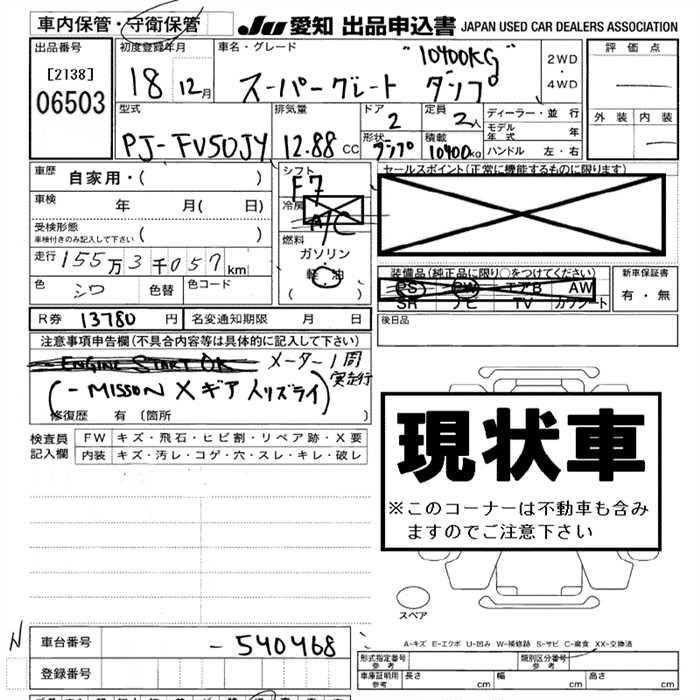 車内保管・守衛保管
JU 愛知 出品申込書 JAPAN USED CAR DEALERS ASSOCIATION
出品番号
[2138]
06503
初度登録年月
18 12月
車名・グレード
"10400KG"
スーパーグレート ダンプ
2WD
・
4WD
評価点
外装 内装
型式
PJ-FV50JY
排気量
12.88 CC
ドア
2
定員
2人
形状
ダンプ
積載
10400kg
ディーラー・並行
モデル年式 年
ハンドル 左・右
車歴 自家用・( )
車検 年 月( 日)
受検形態
車検付きのみ記入して下さい ( )
走行 155万3千057km
色 シロ 色替 色コード
シフト
F7
冷房
A/C
燃料
ガソリン
軽油
( )
セールスポイント(正常に機能するものに限ります)
装備品(純正品に限り○をつけてください)
PS PW エアB AW
SR ナビ TV カワシート
新車保証書
有・無
R券 13780 円 名変通知期限 月 日
後日品
注意事項申告欄(不具合内容等は具体的に記入して下さい)
- ENGINE START OK メーター1周
実走行
(- MISSON X ギア入リズライ)
修復歴 有 〔箇所 〕
検査員記入欄
FW キズ・飛石・ヒビ割・リペア跡・X要
内装 キズ・汚レ・コゲ・穴・スレ・キレ・破レ
現状車
※このコーナーは不動車も含み
ますのでご注意下さい
スペア
A-キズ E-エクボ U-凹み W-補修跡 S-サビ C-腐食 XX-交換済
N
車台番号 -540468
登録番号
形式指定番号 参考
類別区分番号 参考
車庫証明用 参考 長さ cm 幅 cm 高さ cm